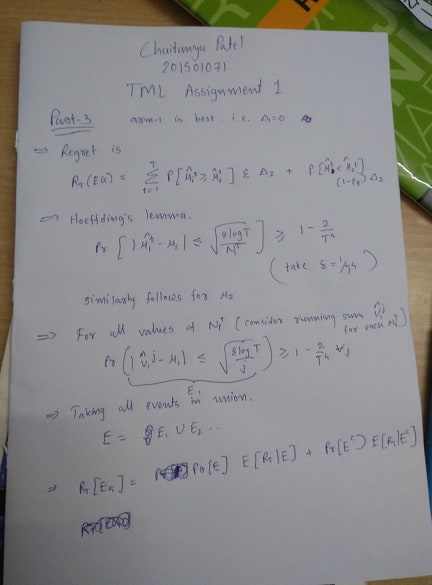 Chaitanya Patel
201501071
TML Assignment 1
Part-3 arm-1 is best. i.e. Δ₁=0
⇒ Regret is
R_T(EG) = Σ_{t=1}^{T} P[μ̂₁ᵗ ≥ μ̂₂ᵗ] ε Δ₂ + P[μ̂₁ᵗ < μ̂₂ᵗ] (1-ε_t) Δ₂
⇒ Hoeffding's lemma.
Pr [|μ̂₁ᵗ - μ₁| ≤ √(8logT / N₁ᵗ)] ≥ 1 - 2/T⁴
(take δ = 1/T⁴)
similarly follows for μ₂
⇒ For all values of N₁ᵀ (consider running sum v̂₁ʲ
for each N₁ᵗ)
Pr(|v̂₁ʲ - μ₁| ≤ √(8logT / j)) ≥ 1 - 2/T⁴ ∀j
E₁
⇒ Taking all events in union.
E = E₁ ∪ E₂ ...
⇒ R_T[EG] = Pr[E] E[R_T|E] + Pr[Eᶜ] E[R_T|Eᶜ]